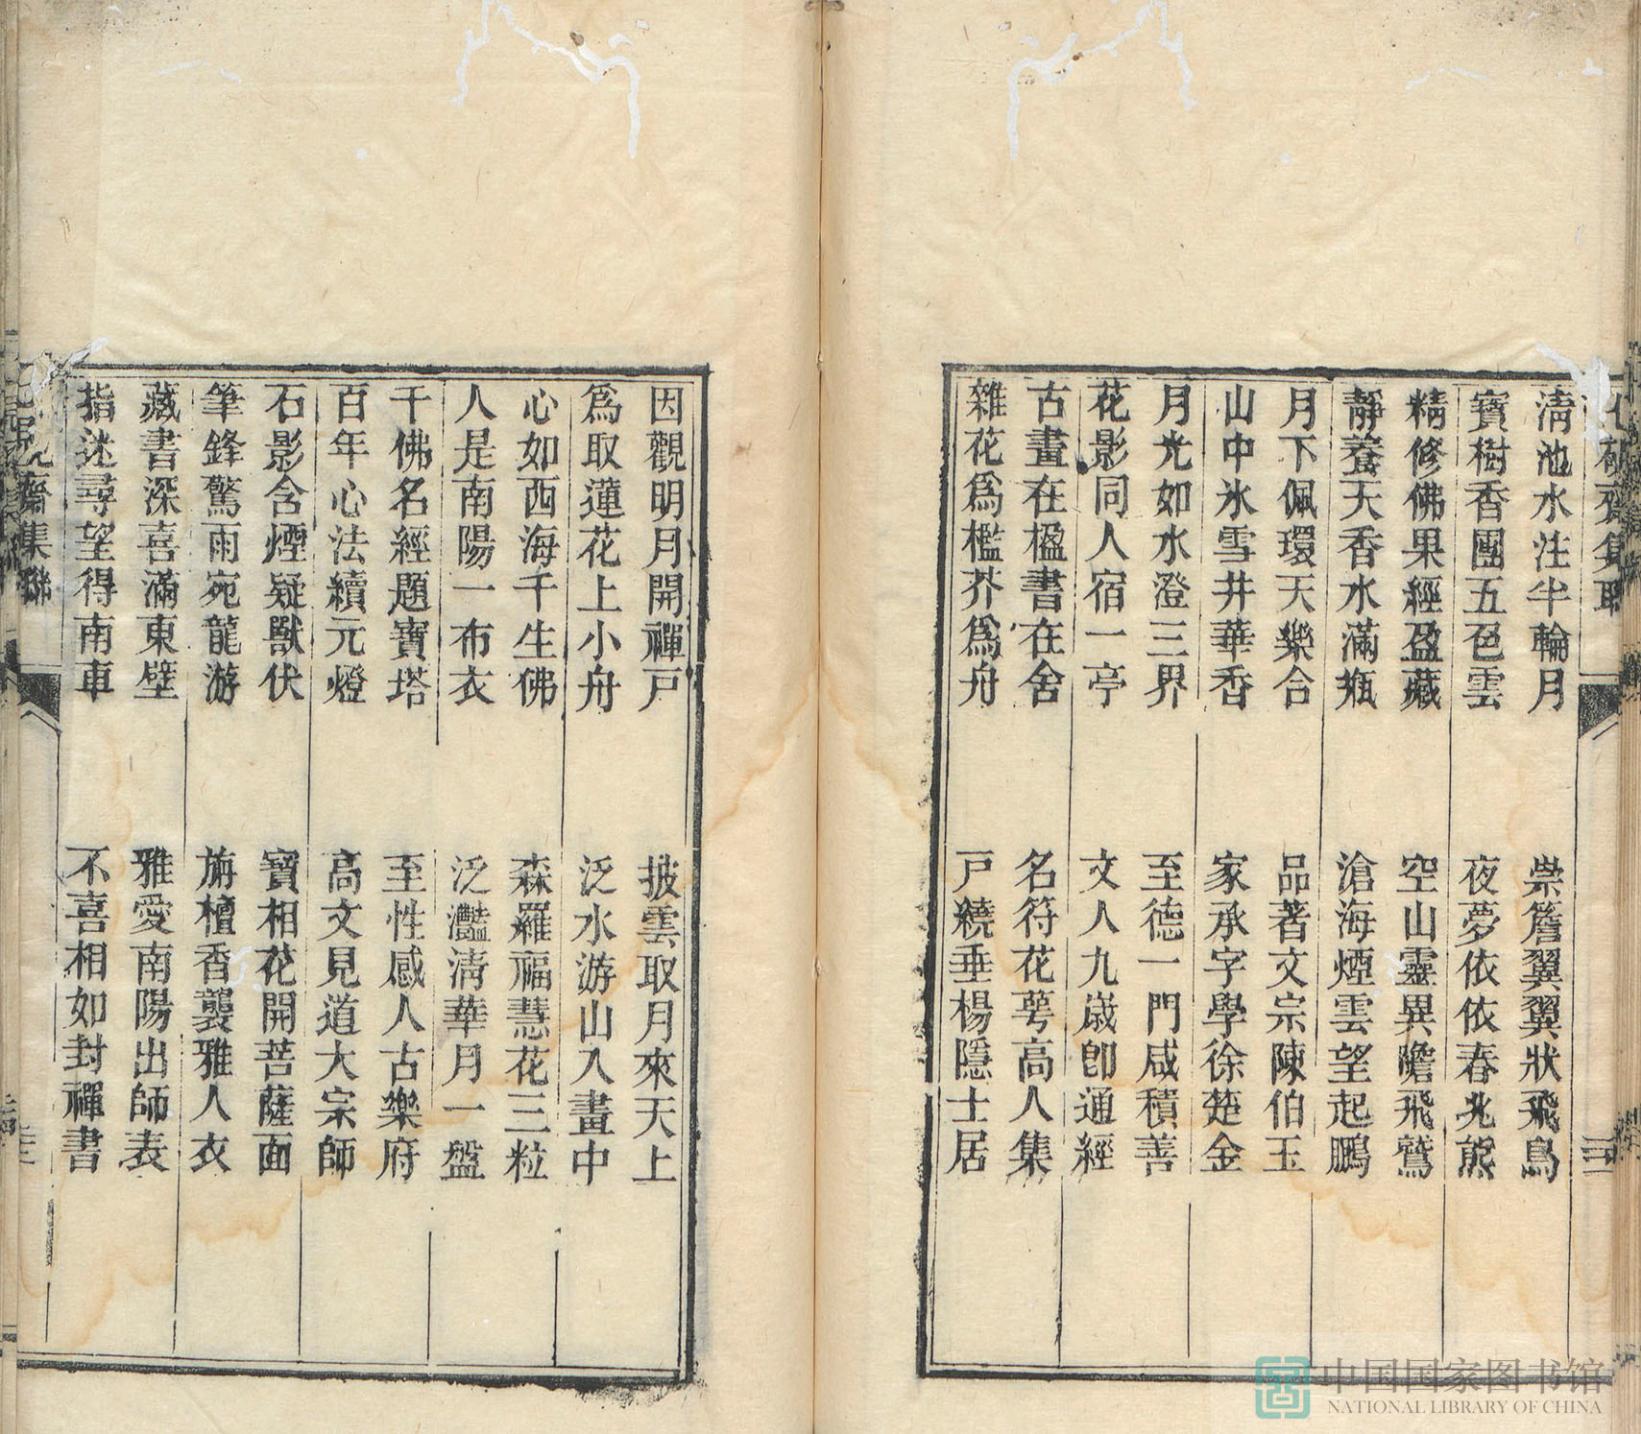 清池水注半輪月
崇簷翼翼狀飛鳥
寶樹香團五色雲
夜夢依依春兆熊
精修佛果經盈藏
空山靈異瞻飛鷲
靜養天香水滿瓶
滄海煙雲望起鵬
月下佩環天樂合
品著文宗陳伯玉
山中氷雪井華香
家承字學徐楚金
月光如水澄三界
至德一門咸積善
花影同人宿一亭
文人九歲卽通經
古畫在楹書在舍
名符花萼高人集
雜花爲檻芥爲舟
戸繞垂楊隱士居
因觀明月開禪戸
披雲取月來天上
爲取蓮花上小舟
泛水游山入畫中
心如西海千生佛
森羅福慧花三粒
人是南陽一布衣
泛灩清華月一盤
千佛名經題寶塔
至性感人古樂府
百年心法續元燈
高文見道大宗師
石影含煙疑獸伏
寶相花開菩薩面
筆鋒驚雨宛龍游
旃檀香襲雅人衣
藏書深喜滿東壁
雅愛南陽出師表
指迷尋望得南車
不喜相如封禪書
齋集聯
中国国家图书馆
NATIONAL LIBRARY OF CHINA